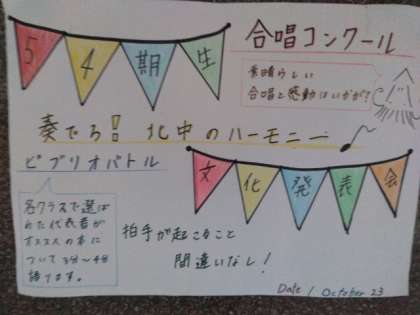 54期生
合唱コンクール
素晴らしい
合唱と感動はいかが?
奏でろ! 北中のハーモニー
ビブリオバトル
文化発表会
各クラスで選ば
れた代表者が
オススメの本に
ついて3分〜4分
語ります。
拍手が起こること
間違いなし!
Date / October 23